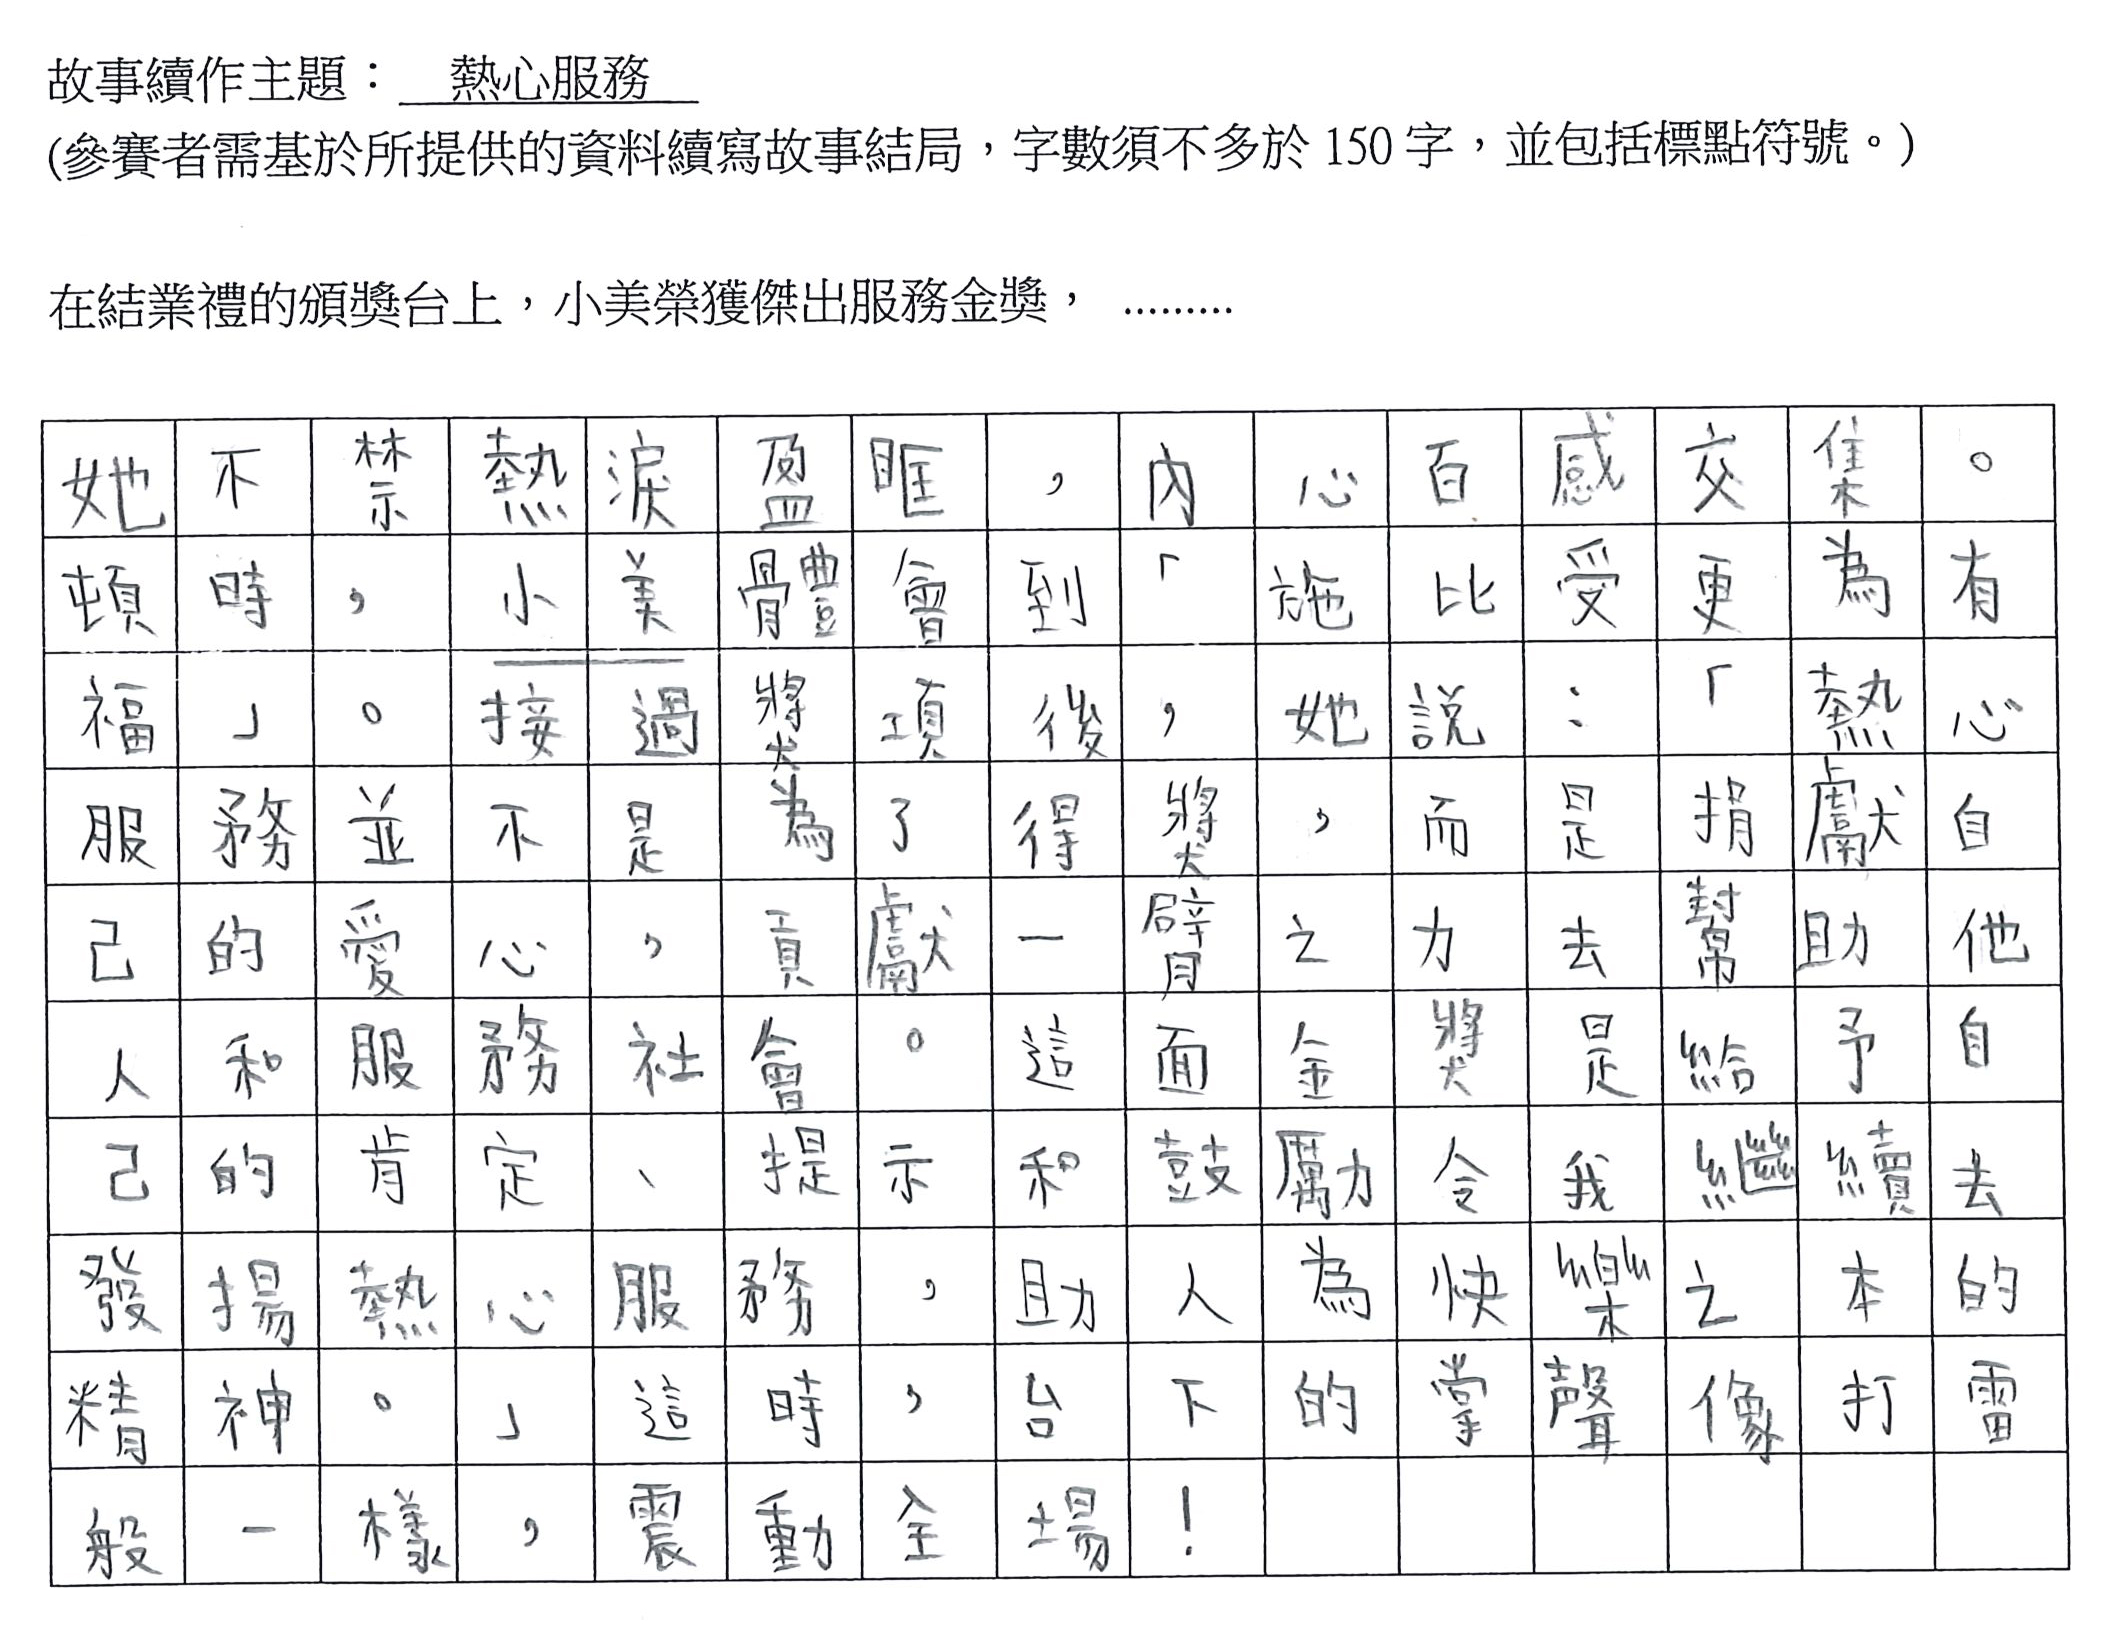 故事續作主題：　熱心服務
(參賽者需基於所提供的資料續寫故事結局，字數須不多於 150 字，並包括標點符號。)
在結業禮的頒獎台上，小美榮獲傑出服務金獎，　………
她不禁熱淚盈眶，內心百感交集。
頓時，小美體會到「施比受更為有
福」。接過獎項後，她說：「熱心
服務並不是為了得獎，而是捐獻自
己的愛心，貢獻一臂之力去幫助他
人和服務社會。這面金獎是給予自
己的肯定、提示和鼓勵令我繼續去
發揚熱心服務，助人為快樂之本的
精神。」這時，台下的掌聲像打雷
般一樣，震動全場！